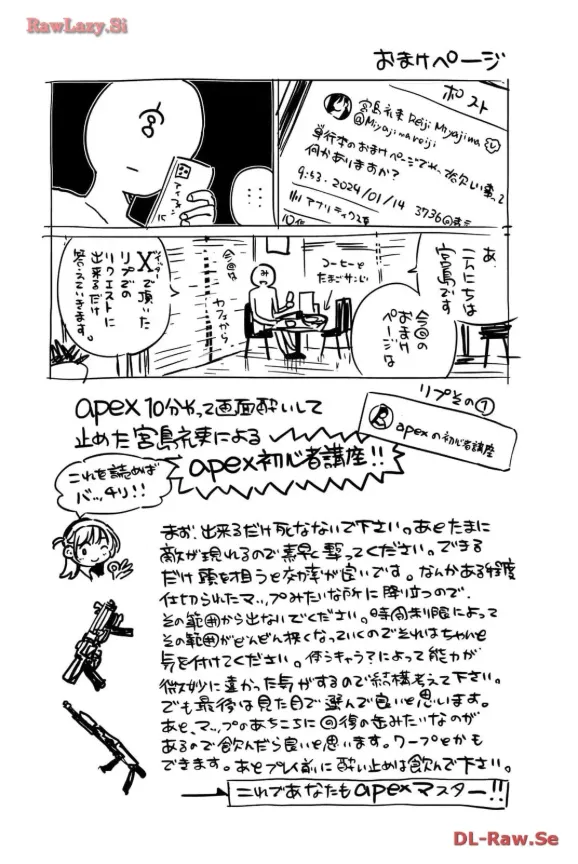 RawLazy.Si
おまけページ
ポスト
宮島礼吏 Reiji Miyajima
@Miyajimareiji
単行本のおまけページでやって欲しい事って
何かありますか?
9:53・2024/01/14 3736回表示
アイフォン15
…
あ、
こんにちは
宮島です
今回の
おまけ
ページは
コーヒーと
たまごサンド
今回は
カフェから
X
で頂いた
リプでの
リクエストに
出来るだけ
答えていきます。
リプその①
apexの初心者講座
apex10分やって画面酔いして
止めた宮島礼吏による
apex初心者講座!!
これを読めば
バッチリ!!
まず、出来るだけ死なないで下さい。あとたまに
敵が現れるので素早く撃ってください。できる
だけ頭を狙うと効率が良いです。なんかある程度
仕切られたマップみたいな所に降り立つので、
その範囲から出ないでください。時間制限によって
その範囲がどんどん狭くなっていくのでそれはちゃんと
気を付けてください。使うキャラ?によって能力が
微妙に違かった気がするので結構考えて下さい。
でも最後は見た目で選んで良いと思います。
あと、マップのあちこちに回復の缶みたいなのが
あるので飲んだら良いと思います。ワープとかも
できます。あとプレイ前に酔い止めは飲んで下さい。
これであなたもapexマスター!!
DL-Raw.Se